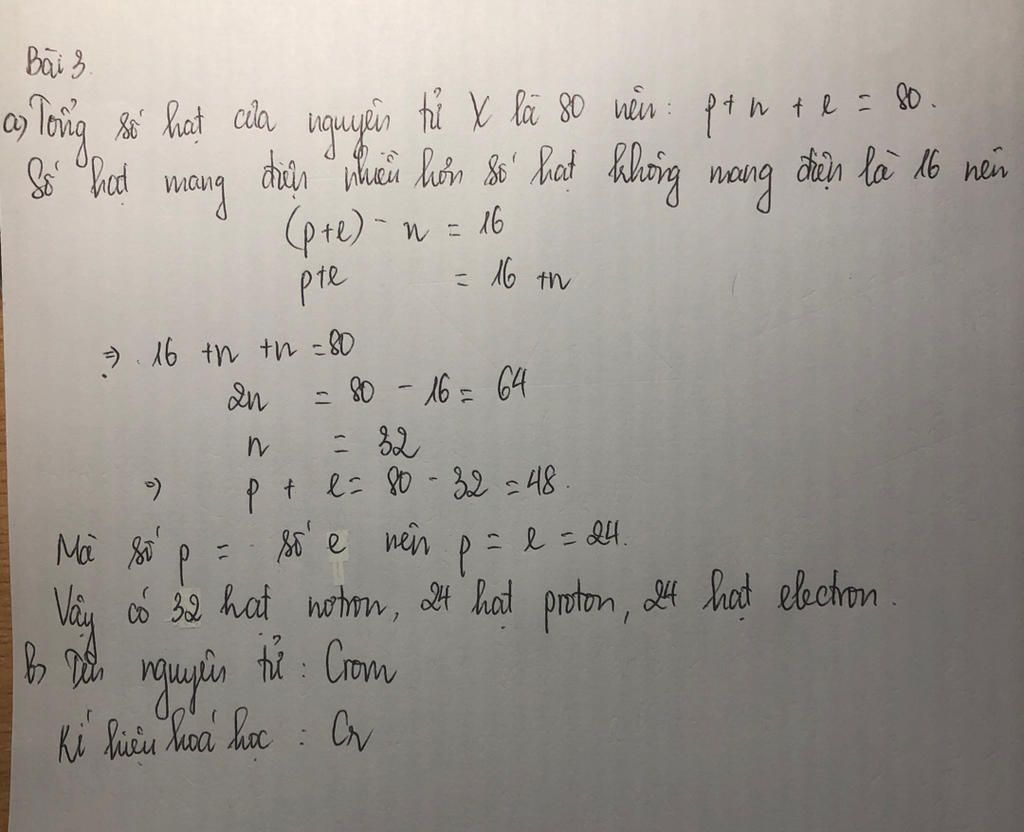 Bài 3.
a) Tổng số hạt của nguyên tử X là 80 nên: p + n + e = 80.
Số hạt mang điện nhiều hơn số hạt không mang điện là 16 nên
(p+e) - n = 16
p+e = 16 +n
=> 16 +n +n = 80
2n = 80 - 16 = 64
n = 32
=> p + e = 80 - 32 = 48.
Mà số p = số e nên p = e = 24.
Vậy có 32 hạt notron, 24 hạt proton, 24 hạt electron.
b) Tên nguyên tử : Crom
Kí hiệu hoá học : Cr